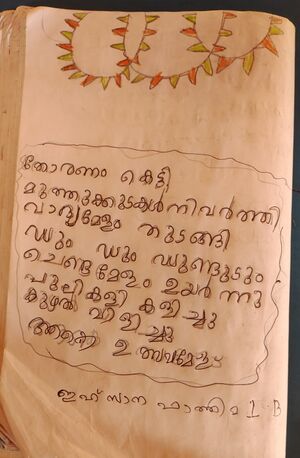 തോരണം കെട്ടി
മുത്തുക്കുടകൾ നിവർത്തി
വാദ്യമേളം തുടങ്ങി
ഡും ഡും ഡുണ്ടുടും
ചെണ്ടമേളം ഉയർന്നു
പുലികളി കളിച്ചു
കുഴൽ വിളിച്ചു
ആകെ ഉത്സവമേളം
ഇഹ്സാന ഫാത്തിമ 1-B